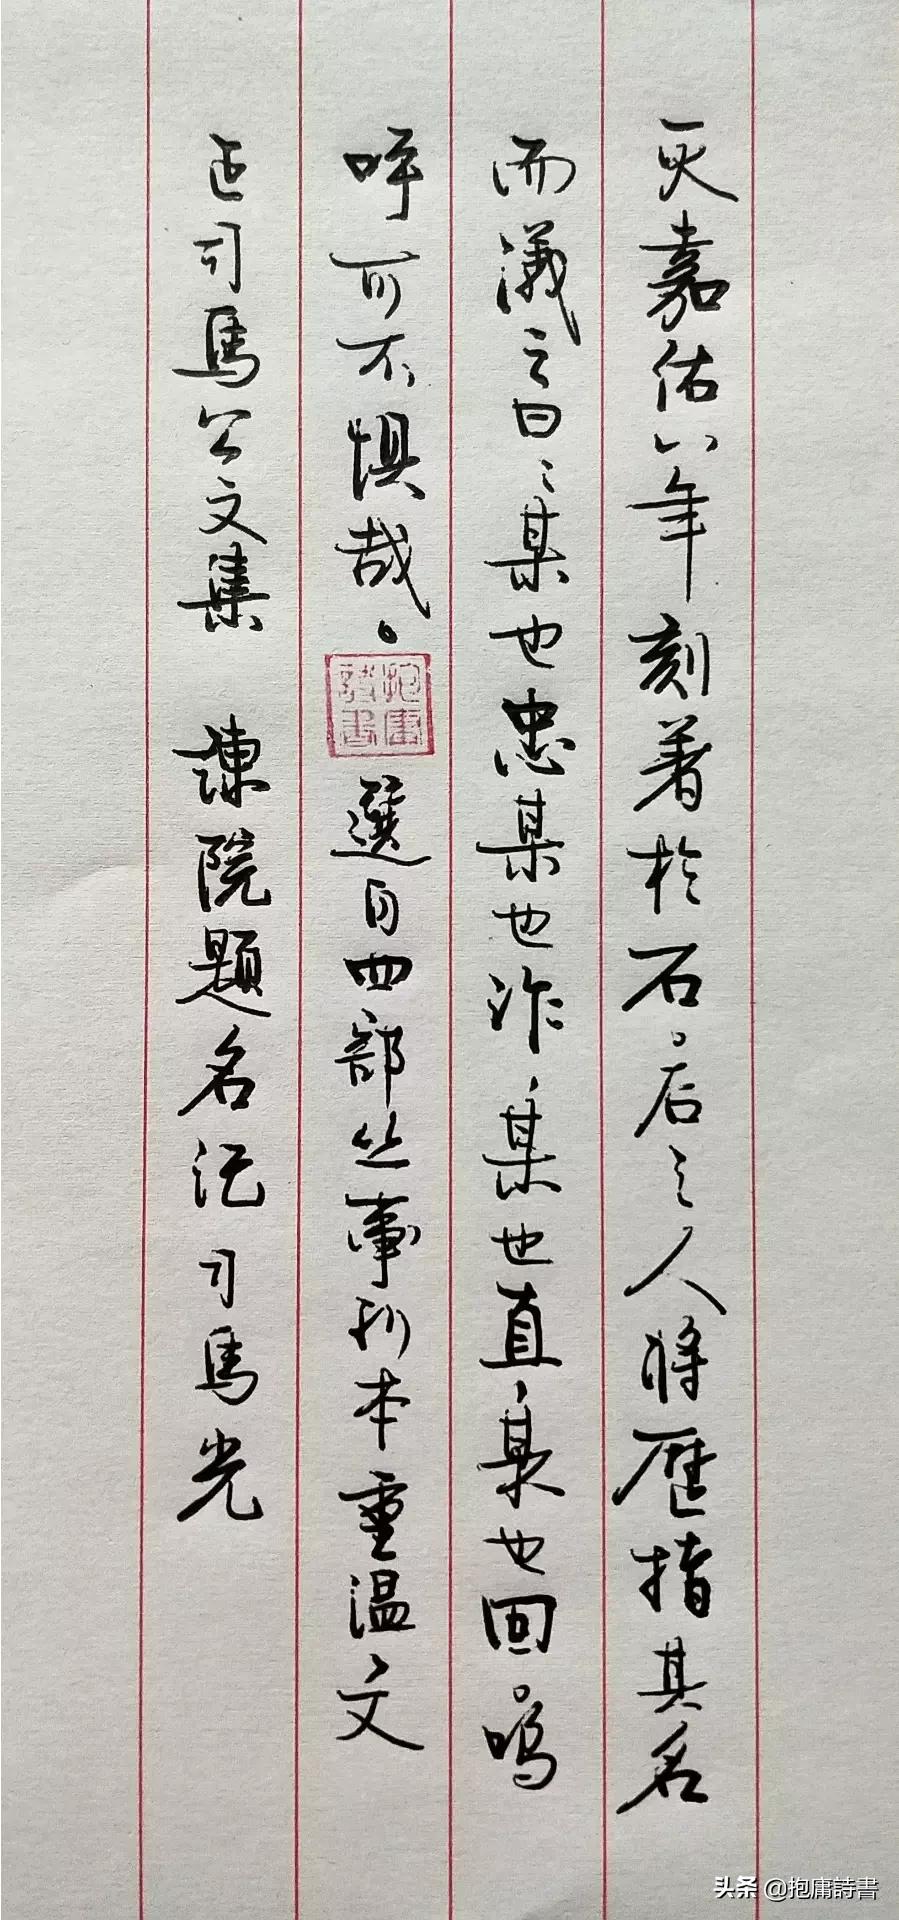 灭嘉佑八年刻著於石。后之人将歷指其名
而議之曰：某也忠，某也诈，某也直，某也回。嗚
呼可不惧哉。
抱庸詩書
選自四部丛書刊本重温文
正司馬公文集 諫院題名记 司馬光
头条 @抱庸詩書